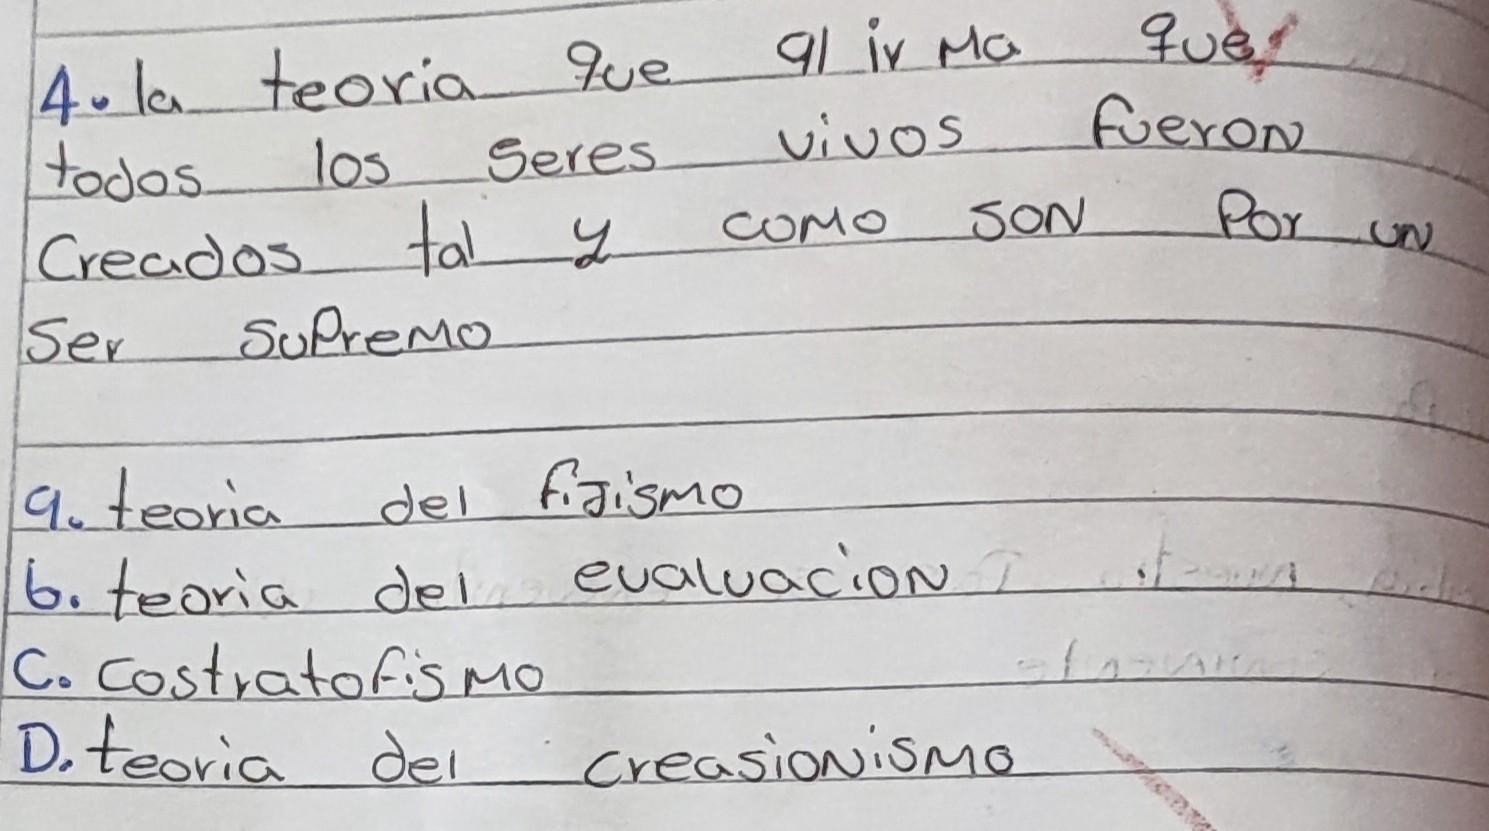 4. la teoria que afirma que
todos los seres vivos fueron
Creados tal y como son Por un
Ser Supremo
a. teoria del fijismo
b. teoria del evaluacion
C. Costratofismo
D. teoria del creasionismo